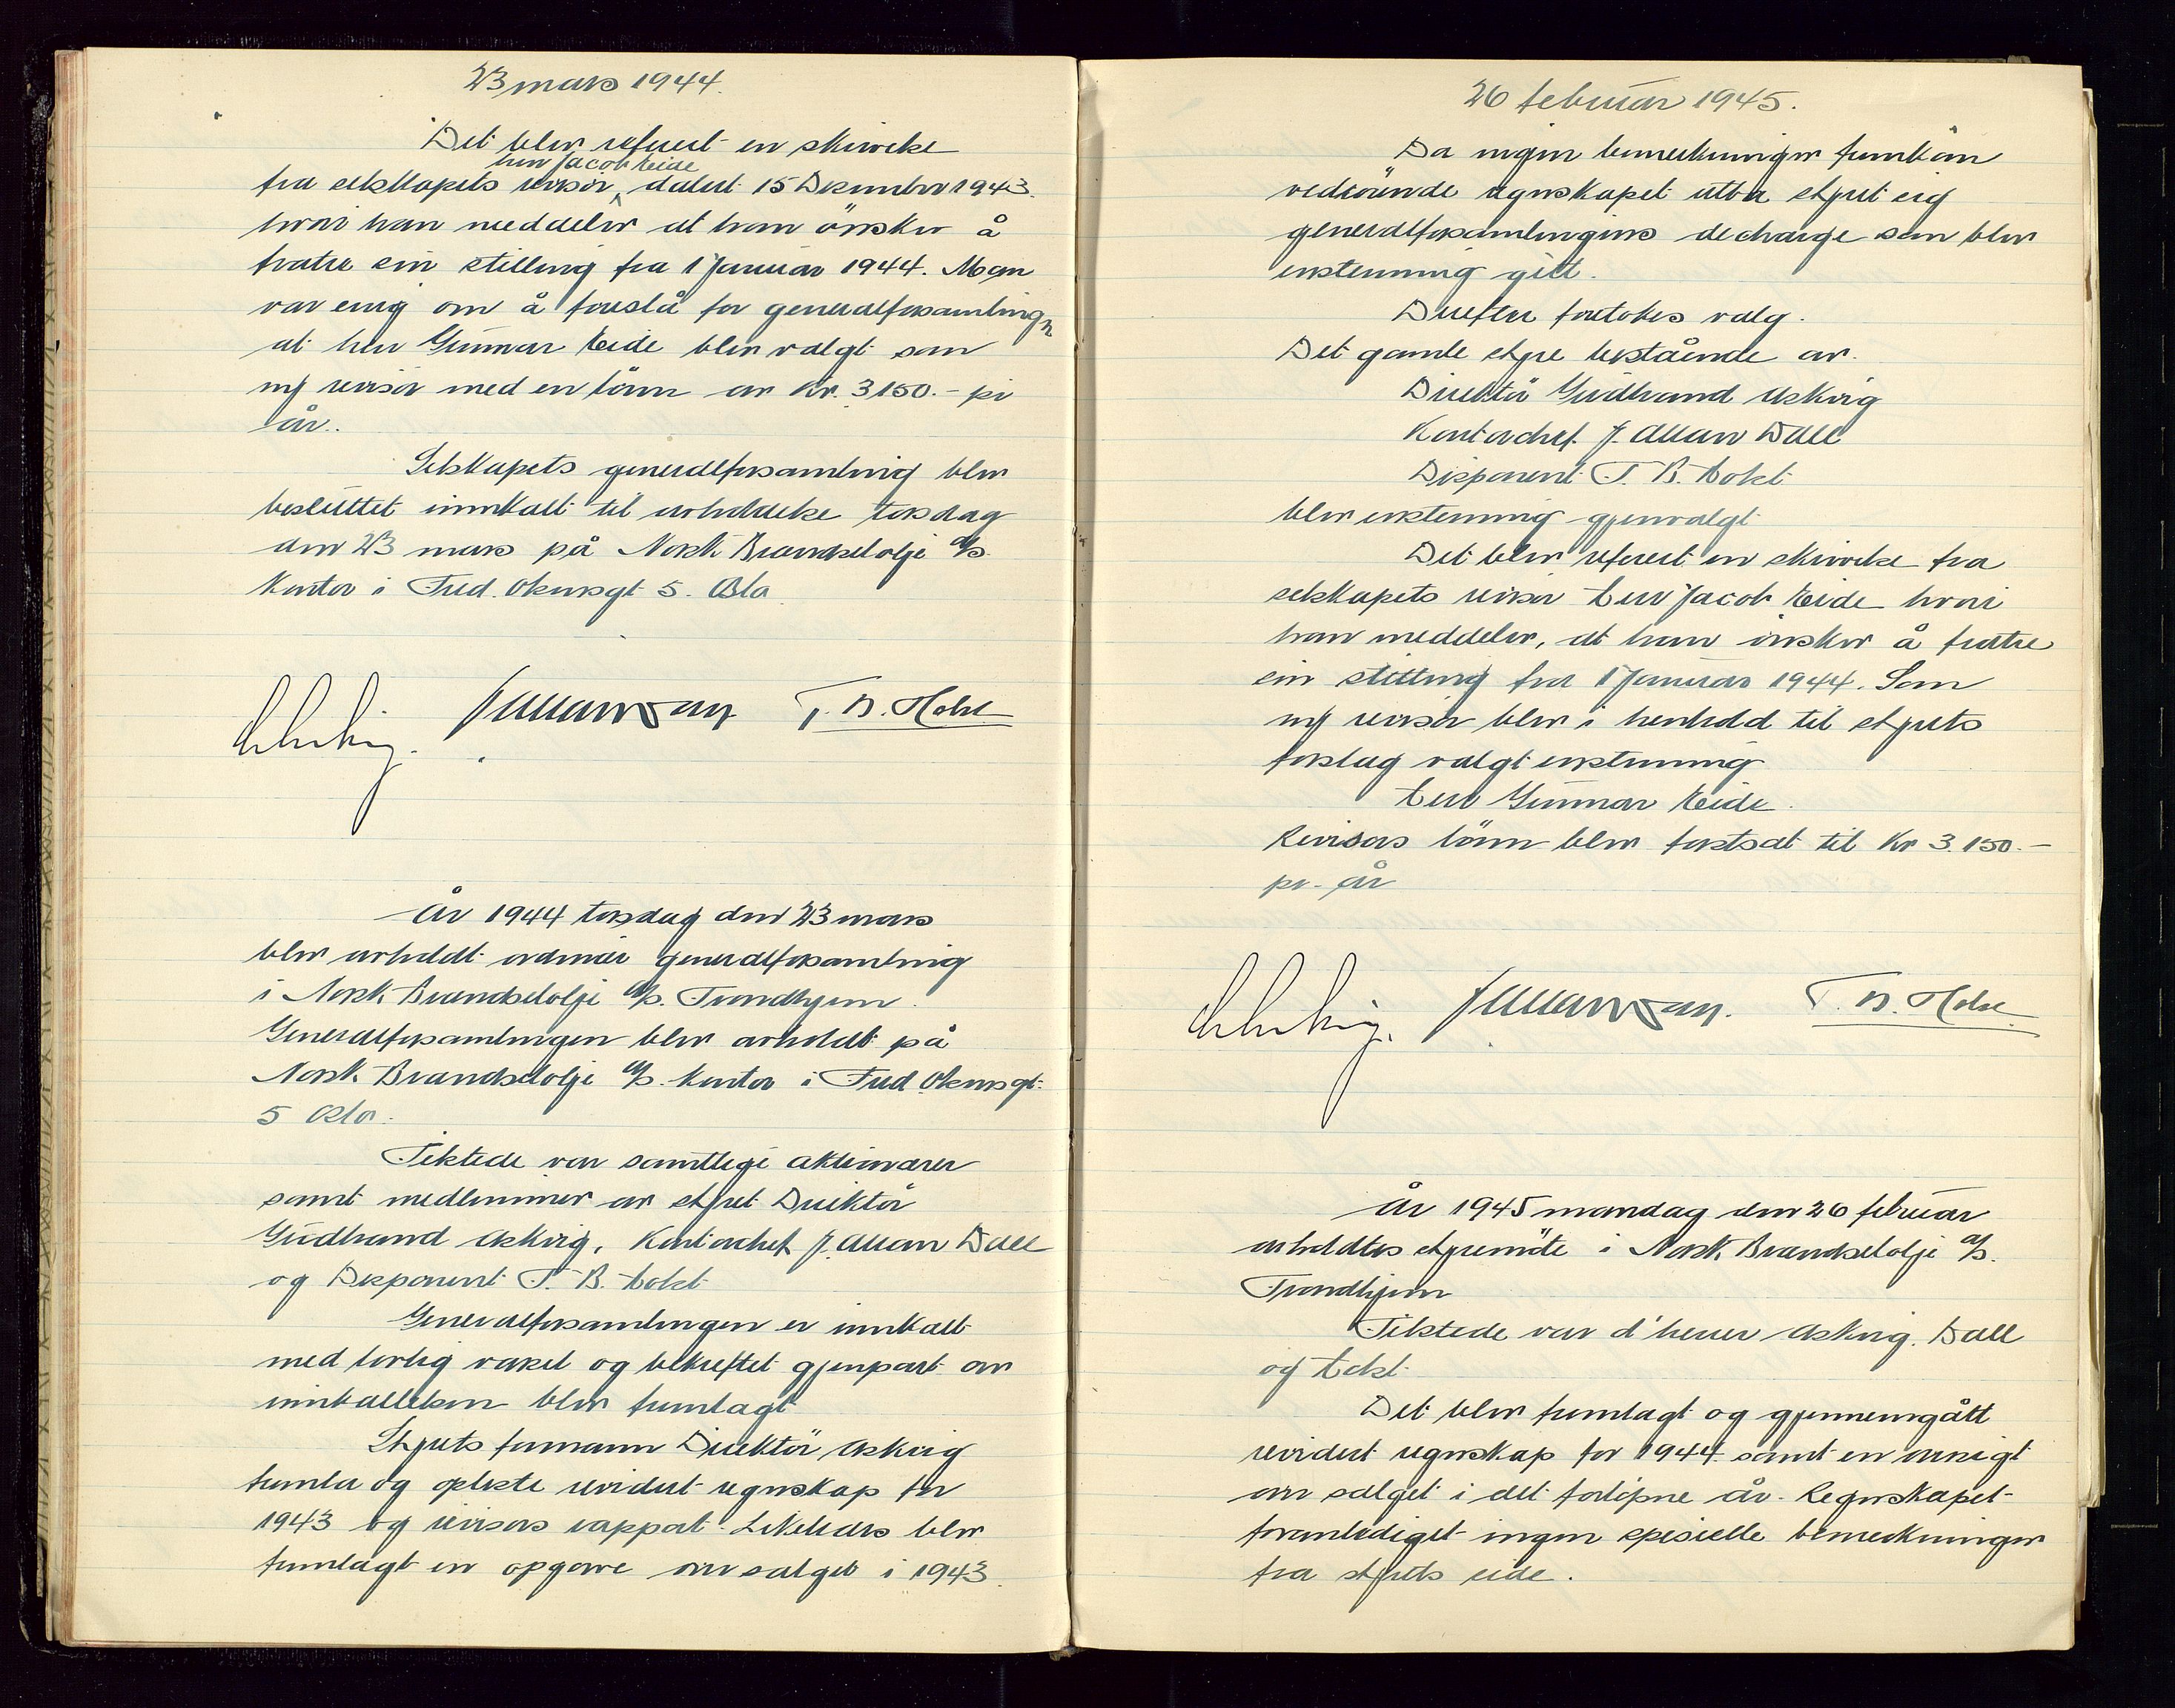 23 mars 1944.
Det blev referert en skrivelse
herr Jacob Eide
fra selskapets revisor, datert 15 Desember 1943.
hvori han meddeler at han önsker å
fratre sin stilling fra 1 Januar 1944. Man
var enig om å foreslå for generalforsamlingen
at herr Gunnar Eide blev valgt som
ny revisor med en lönn av Kr. 3150.- pr
år.
Selskapets generalforsamling blev
besluttet innkalt til avholdelse torsdag
den 23 mars på Norsk Brændselolje A/S.
Kontor i Fred. Olsensgt 5. Oslo
T. B. Holst
År 1944 torsdag den 23 mars
blev avholdt ordinær generalforsamling
i Norsk Brændselolje A/S. Trondhjem.
Generalforsamlingen blev avholdt på
Norsk Brændselolje A/S. Kontor i Fred. Olsensgt.
5 Oslo.
Tilstede var samtlige aktionærer
samt medlemmer av styret Direktör
Gudbrand Askvig, Kontorchef J. Allan Dall
og Disponent T. B. Holst
Generalforsamlingen er innkalt
med lovlig varsel og bekreftet gjenpart av
innkallelsen blev fremlagt
Styrets formann Direktör Askvig
fremla og oplæste revidert regnskap for
1943 og revisors rapport. Likeledes blev
fremlagt en opgave over salget i 1943.
26 februar 1945.
Da ingen bemerkninger fremkom
vedrörende regnskapet utba styret sig
generalforsamlingens decharge som blev
enstemmig gitt.
Derefter foretokes valg.
Det gamle styre bestående av.
Direktör Gudbrand Askvig
Kontorchef J. Allan Dall
Disponent T. B. Holst
blev enstemmig gjenvalgt
Det blev referert en skrivelse fra
selskapets revisor herr Jacob Eide hvori
han meddeler, at han önsker å fratre
sin stilling fra 1 Januar 1944. Som
ny revisor blev i henhold til styrets
forslag valgt enstemmig
herr Gunnar Eide.
Revisors lönn blev fastsat til Kr 3.150.-
pr. år
T. B. Holst.
År 1945 mandag den 26 februar
avholdtes styremöte i Norsk Brændselolje A/S.
Trondhjem
Tilstede var d'herrer Askvig, Dall
og Holst
Det blev fremlagt og gjennemgått
revidert regnskap for 1944 samt en oversigt
over salget i det forlöpne år. Regnskapet
foranlediget ingen spesielle bemerkninger
fra styrets side.